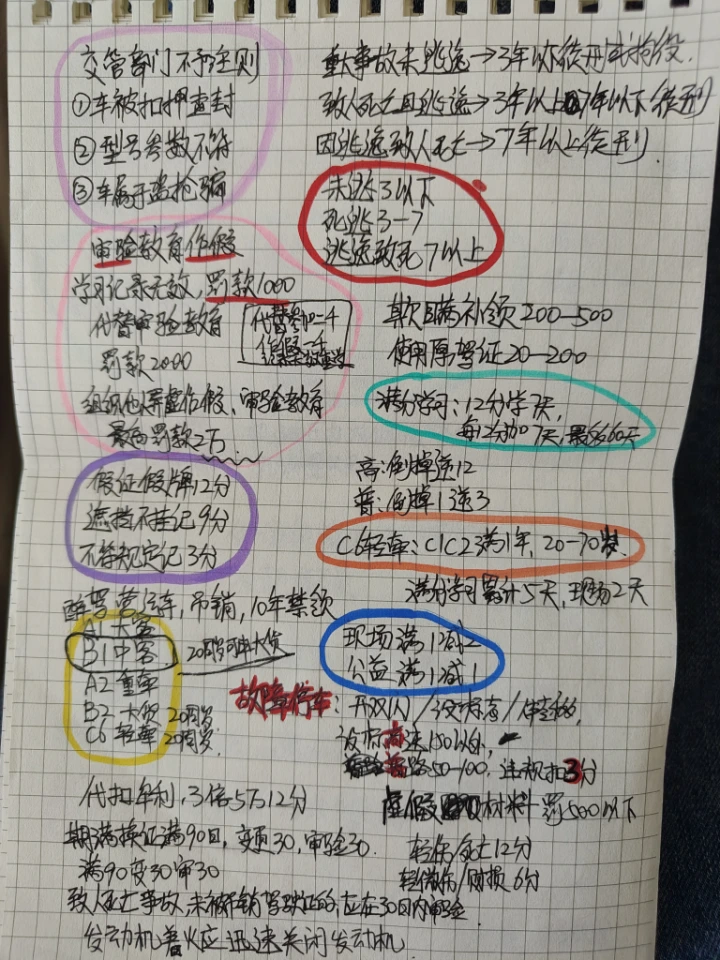 交管部门不予注则
①车被扣押查封
②型号参数不符
③车属于盗抢骗
审验教育作假
学习记录无效,罚款1000
代替审验教育
罚款2000
代替参加=4
作假=4
组织他人弄虚作假、审验教育
最高罚款2万
假证假牌12分
遮挡不挂记9分
不符规定记3分
醉驾营运车,吊销,10年禁领
A1大客
B1中客
20周岁可申大货
A2重牵
B2 大货 20周岁
C6轻牵 20周岁
代扣牟利,3倍5万12分
期满换证满90日,变更30,审验30.
满90变30审30
致人死亡事故,未被吊销驾驶证的,应在30日内审验
发动机着火应迅速关闭发动机
重大事故未逃逸→3年以下徒刑或拘役.
致人死亡且逃逸→3年以上7年以下徒刑
因逃逸致人死亡→7年以上徒刑.
未逃3以下
死逃3-7
逃逸致死7以上
欺瞒补领200-500
使用原驾证20-200
满分学习:12分学7天,
每12分加7天,最多60天
高:倒掉逆12
普:倒掉1逆3
C6轻牵:C1C2满1年,20-70岁.
满分学习累计5天,现场2天
现场满1减2
公益满1减1
故障停车:开双闪/设标志/体移,
设标高速150以外,
路50-100.违规扣3分
虚假材料罚500以下
轻伤/死亡12分
轻微伤/财损6分